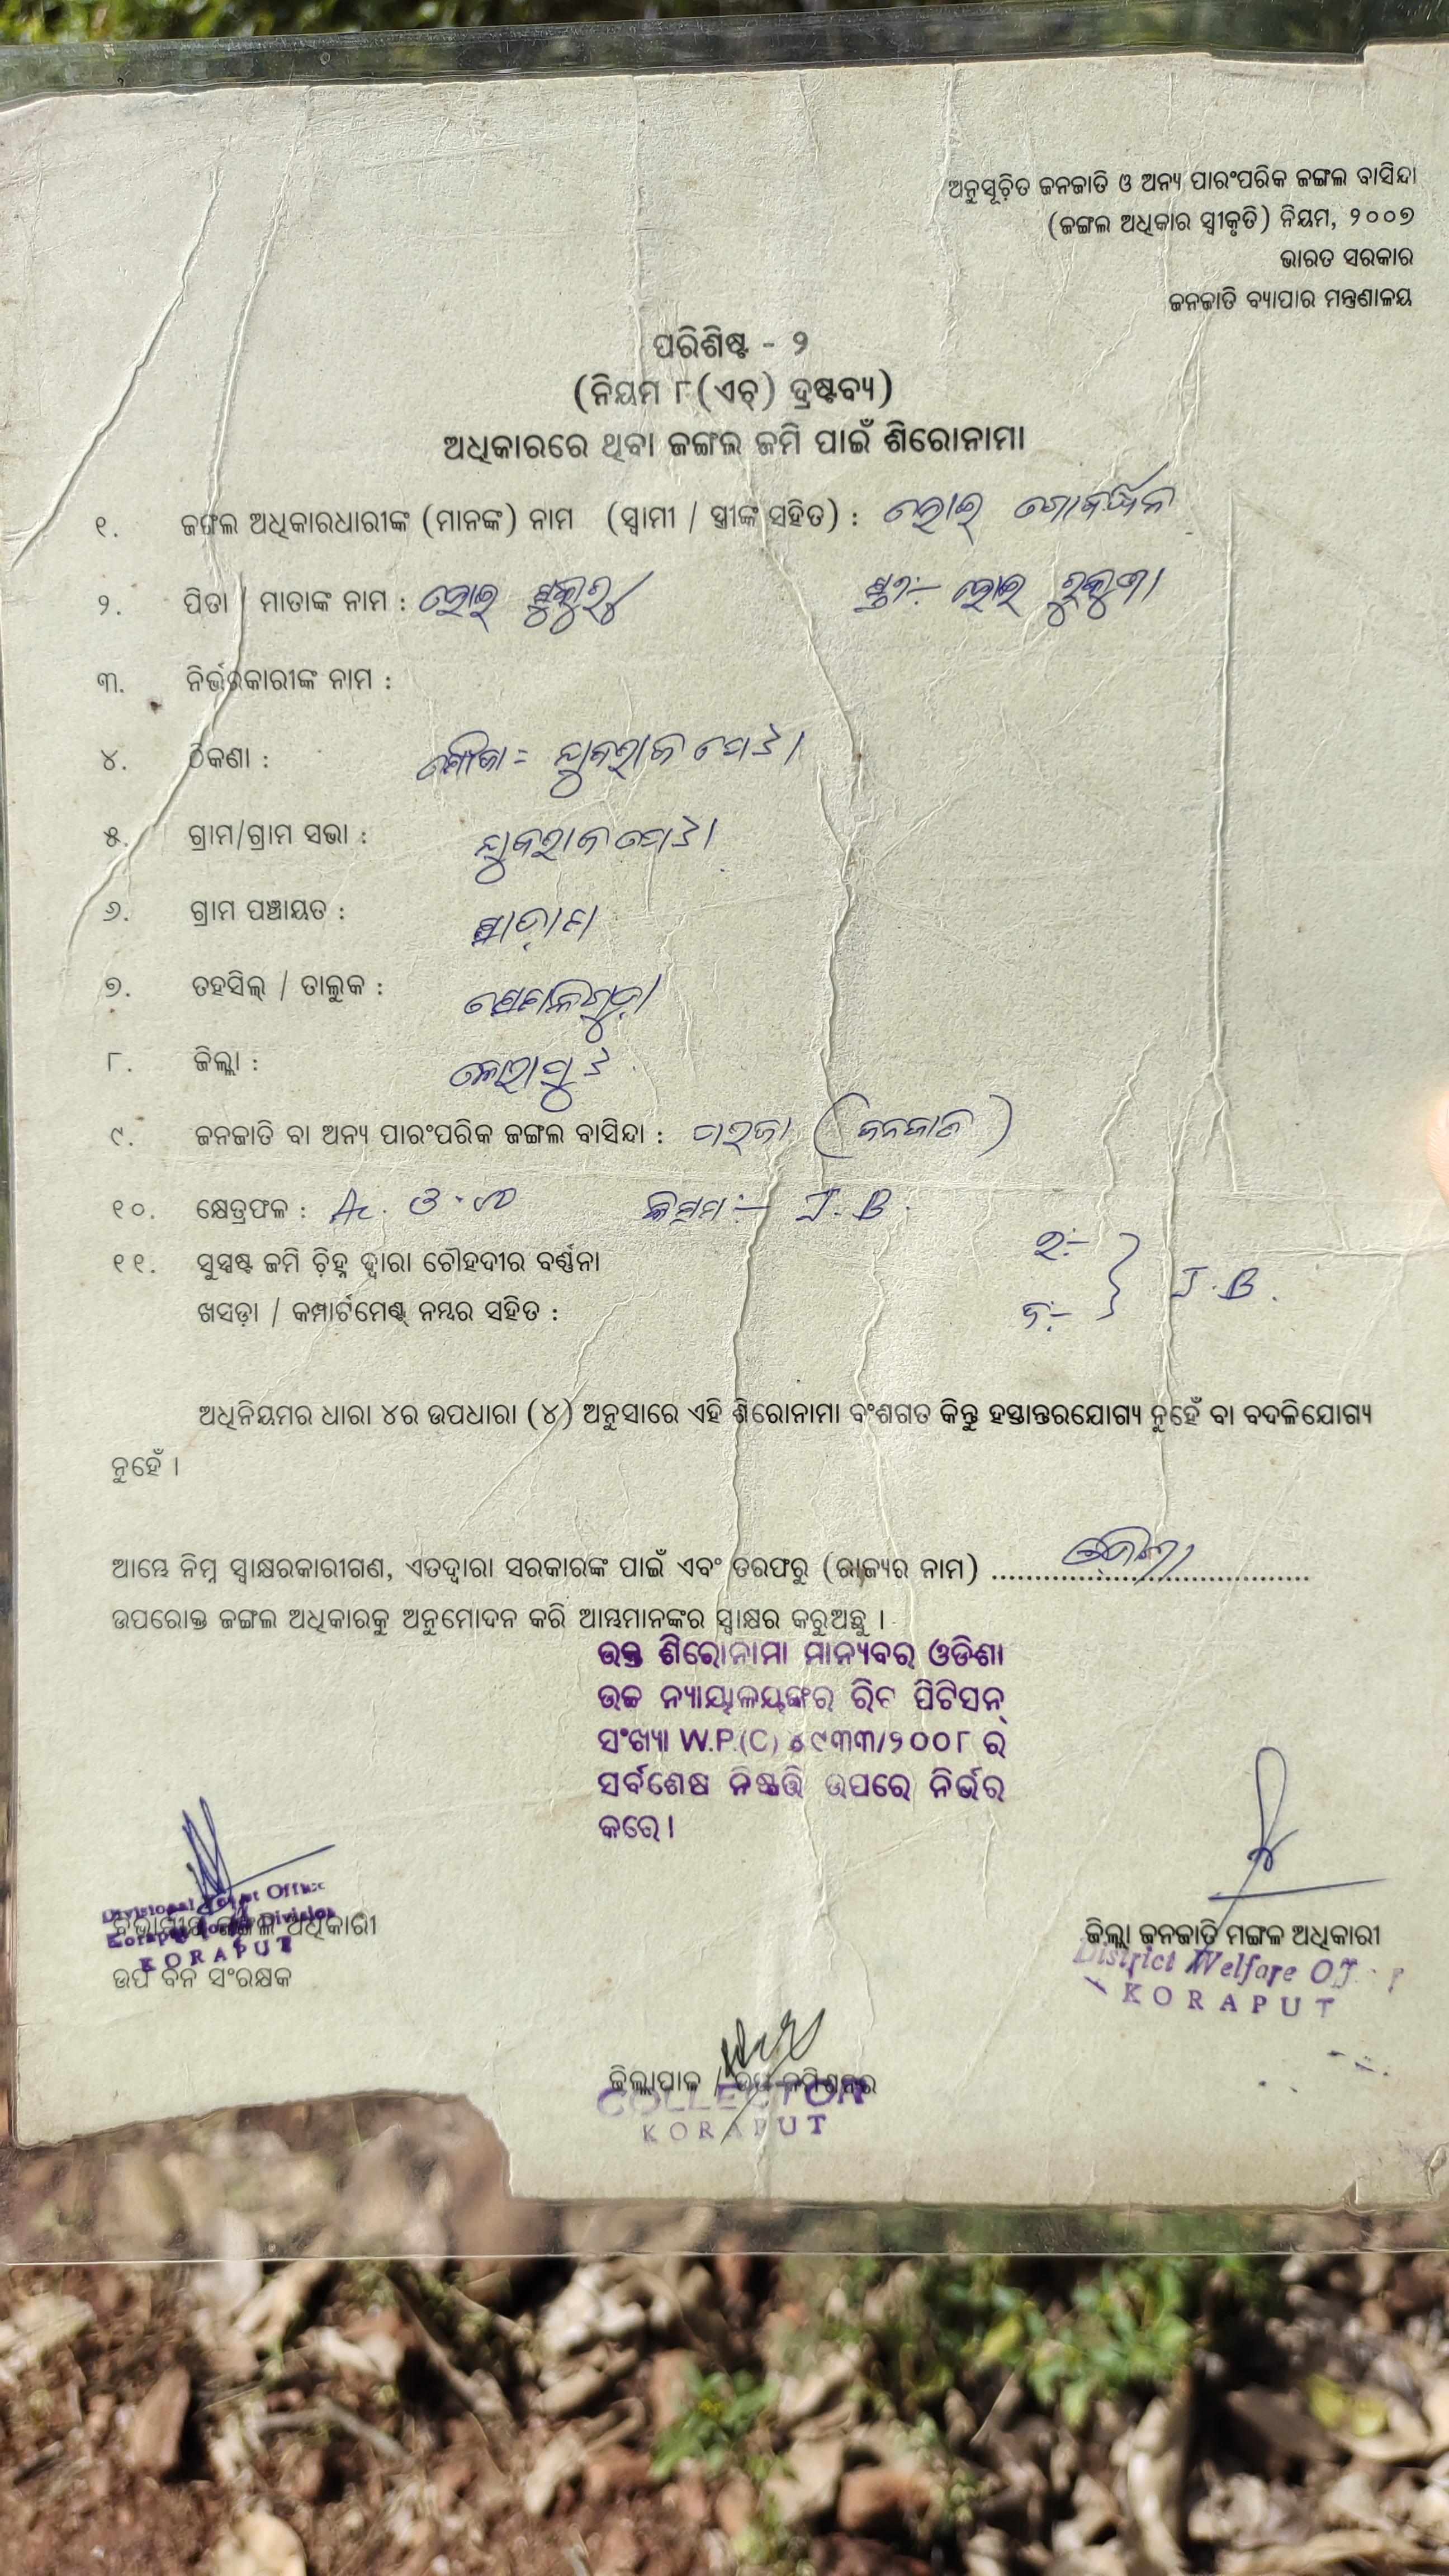 ଅନୁସୂଚିତ ଜନଜାତି ଓ ଅନ୍ୟ ପାରଂପରିକ ଜଙ୍ଗଲ ବାସିନ୍ଦା
(ଜଙ୍ଗଲ ଅଧିକାର ସ୍ୱୀକୃତି) ନିୟମ, ୨୦୦୭
ଭାରତ ସରକାର
ଜନଜାତି ବ୍ୟାପାର ମନ୍ତ୍ରଣାଳୟ
ପରିଶିଷ୍ଟ - ୨
(ନିୟମ ୮(ଏଚ୍) ଦ୍ରଷ୍ଟବ୍ୟ)
ଅଧିକାରରେ ଥିବା ଜଙ୍ଗଲ ଜମି ପାଇଁ ଶିରୋନାମା
୧. ଜଙ୍ଗଲ ଅଧିକାରଧାରୀଙ୍କ (ମାନଙ୍କ) ନାମ (ସ୍ୱାମୀ / ସ୍ତ୍ରୀଙ୍କ ସହିତ) :
୨. ପିତା / ମାତାଙ୍କ ନାମ :
୩. ନିର୍ଭରକାରୀଙ୍କ ନାମ :
୪. ଠିକଣା : ମୌଜା
୫. ଗ୍ରାମ/ଗ୍ରାମ ସଭା :
୬. ଗ୍ରାମ ପଞ୍ଚାୟତ :
୭. ତହସିଲ୍ / ତାଲୁକ : ସେମିଳିଗୁଡ଼ା
୮. ଜିଲ୍ଲା : କୋରାପୁଟ
୯. ଜନଜାତି ବା ଅନ୍ୟ ପାରଂପରିକ ଜଙ୍ଗଲ ବାସିନ୍ଦା : ପରଜା (ଜନଜାତି)
୧୦. କ୍ଷେତ୍ରଫଳ : Ac. କିସମ :- J.B.
୧୧. ସୁସ୍ପଷ୍ଟ ଜମି ଚିହ୍ନ ଦ୍ୱାରା ଚୌହଦୀର ବର୍ଣ୍ଣନା
ଖସଡ଼ା / କମ୍ପାର୍ଟମେଣ୍ଟ୍ ନମ୍ବର ସହିତ : J.B.
ଅଧିନିୟମର ଧାରା ୪ର ଉପଧାରା (୪) ଅନୁସାରେ ଏହି ଶିରୋନାମା ବଂଶଗତ କିନ୍ତୁ ହସ୍ତାନ୍ତରଯୋଗ୍ୟ ନୁହେଁ ବା ବଦଳିଯୋଗ୍ୟ
ନୁହେଁ ।
ଆମ୍ଭେ ନିମ୍ନ ସ୍ୱାକ୍ଷରକାରୀଗଣ, ଏତଦ୍ୱାରା ସରକାରଙ୍କ ପାଇଁ ଏବଂ ତରଫରୁ (ରାଜ୍ୟର ନାମ) ଓଡ଼ିଶା
ଉପରୋକ୍ତ ଜଙ୍ଗଲ ଅଧିକାରକୁ ଅନୁମୋଦନ କରି ଆମ୍ଭମାନଙ୍କର ସ୍ୱାକ୍ଷର କରୁଅଛୁ ।
ଉକ୍ତ ଶିରୋନାମା ମାନ୍ୟବର ଓଡିଶା
ଉଚ୍ଚ ନ୍ୟାୟାଳୟଙ୍କର ରିଟ ପିଟିସନ୍
ସଂଖ୍ୟା W.P.(C) ୪୯୩୩/୨୦୦୮ ର
ସର୍ବଶେଷ ନିଷ୍ପତ୍ତି ଉପରେ ନିର୍ଭର
କରେ।
Divisional Forest Officer
ବିଭାଗୀୟ ଜଙ୍ଗଲ ଅଧିକାରୀ
Koraput Division
KORAPUT
ଉପ ବନ ସଂରକ୍ଷକ
ଜିଲ୍ଲା ଜନଜାତି ମଙ୍ଗଳ ଅଧିକାରୀ
District Welfare Officer
KORAPUT
ଜିଲ୍ଲାପାଳ / ଉପ କମିଶନର
COLLECTOR
KORAPUT